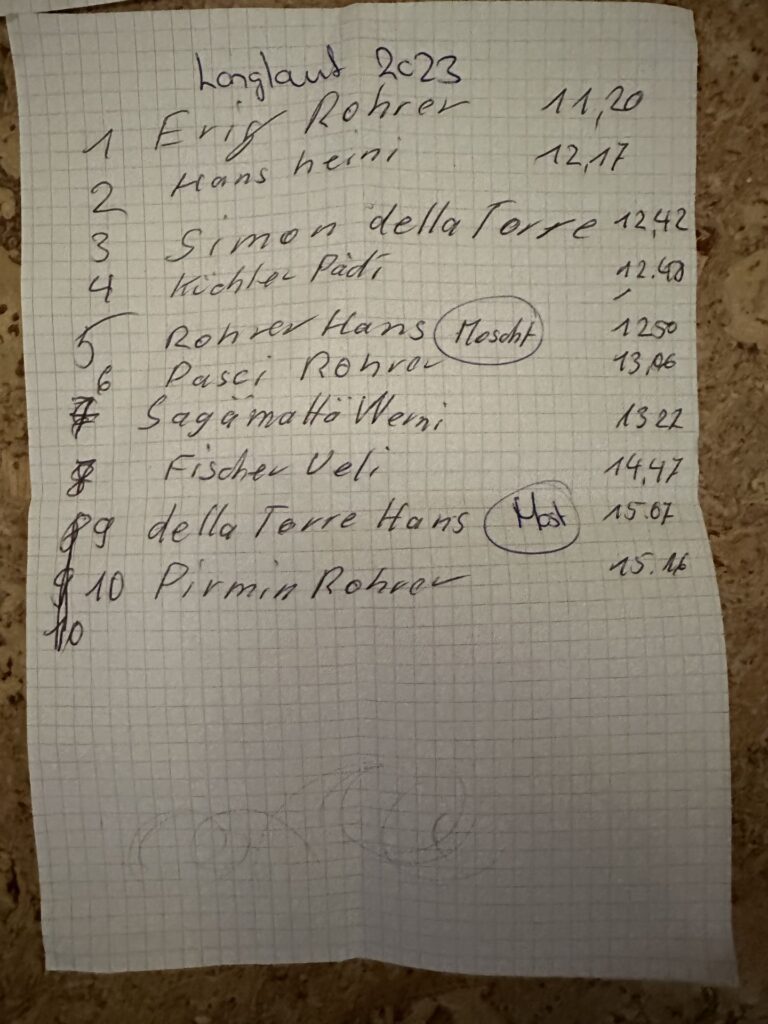 Langlauf 2023
1 Erig Rohrer 11,20
2 Hans heini 12,17
3 Simon della Torre 12,42
4 Küchler Pädi 12.48
5 Rohrer Hans Moscht 1250
6 Pasci Rohrer 13,06
7 Sagämattä Werni 1322
8 Fischer Ueli 14,47
9 della Torre Hans Most 15.07
10 Pirmin Rohrer 15.16
10